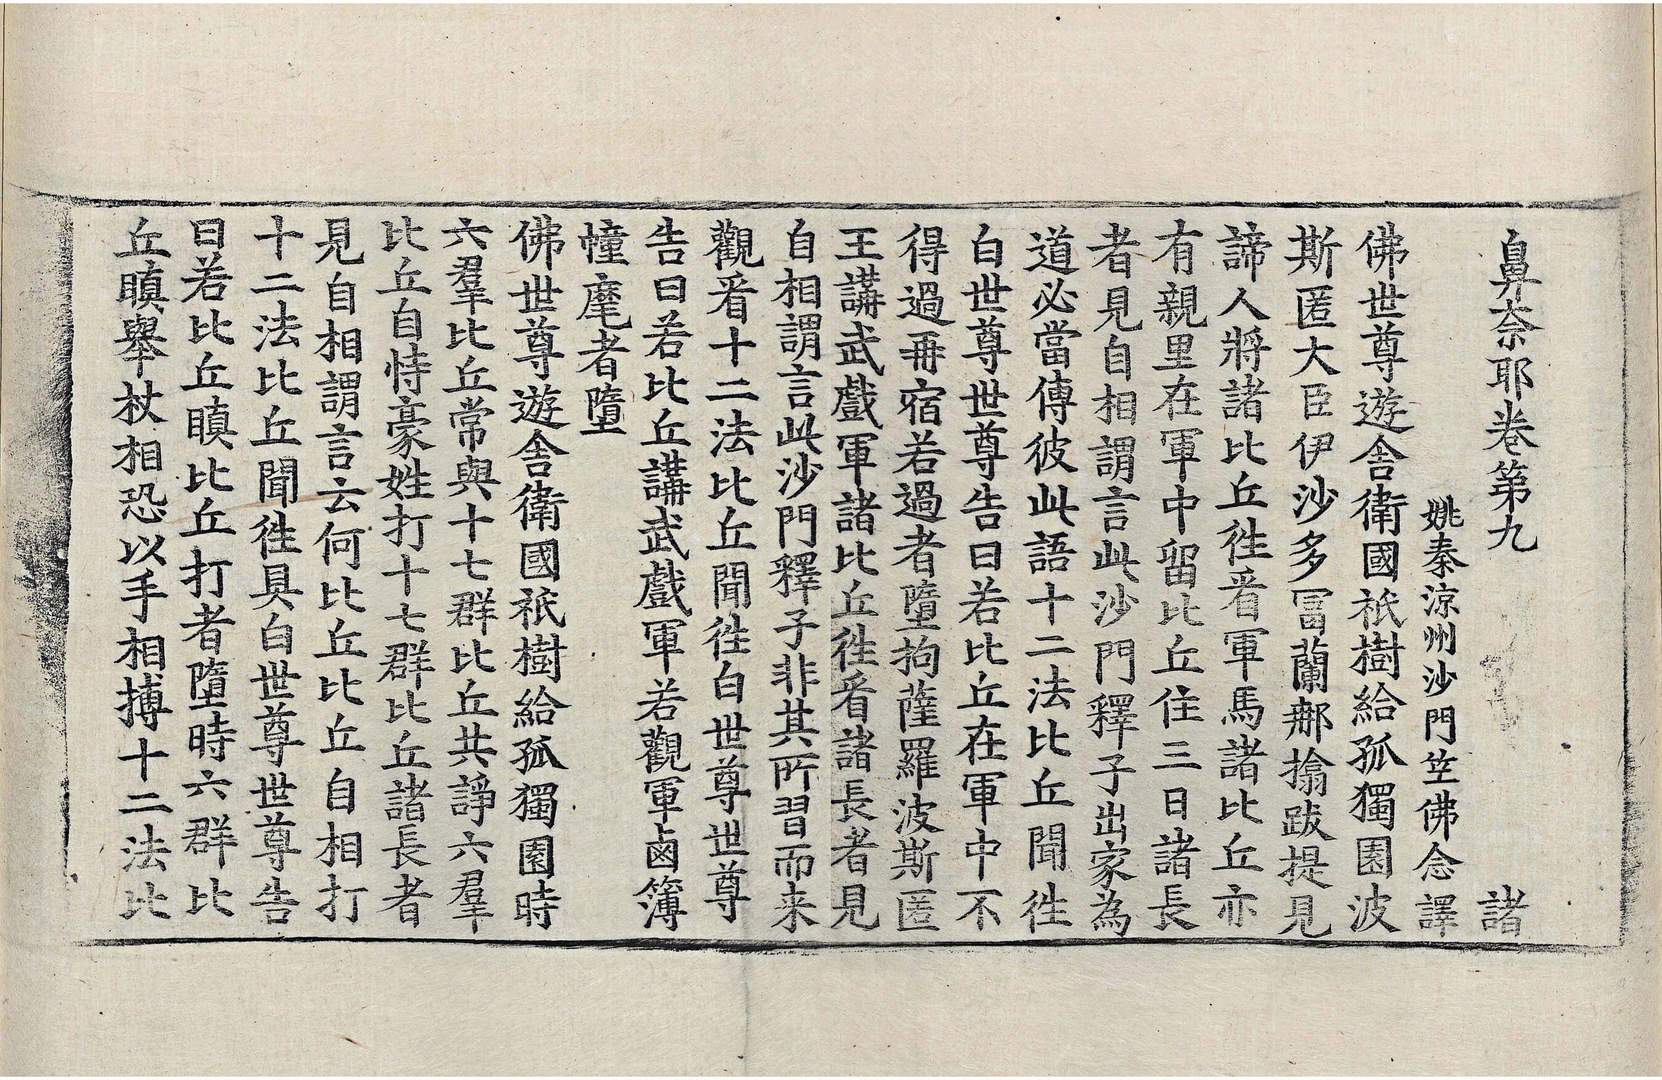 鼻奈耶卷第九 諸
姚秦涼州沙門竺佛念譯
佛世尊遊舍衛國祇樹給孤獨園波
斯匿大臣伊沙多冨蘭𨚗搚跋提見
諦人將諸比丘徃㸔軍馬諸比丘亦
有親里在軍中留比丘住三日諸長
者見自相謂言此沙門釋子出家為
道必當傳彼此語十二法比丘聞徃
白世尊世尊告曰若比丘在軍中不
得過再宿若過者墮拘薩羅波斯匿
王講武戲軍諸比丘徃㸔諸長者見
自相謂言此沙門釋子非其所習而来
觀㸔十二法比丘聞徃白世尊世尊
告曰若比丘講武戲軍若觀軍鹵簿
幢麾者墮
佛世尊遊舍衛國祇樹給孤獨園時
六羣比丘常與十七群比丘共諍六羣
比丘自恃豪姓打十七群比丘諸長者
見自相謂言云何比丘比丘自相打
十二法比丘聞徃具白世尊世尊告
曰若比丘瞋比丘打者墮時六群比
丘瞋舉杖相恐以手相搏十二法比